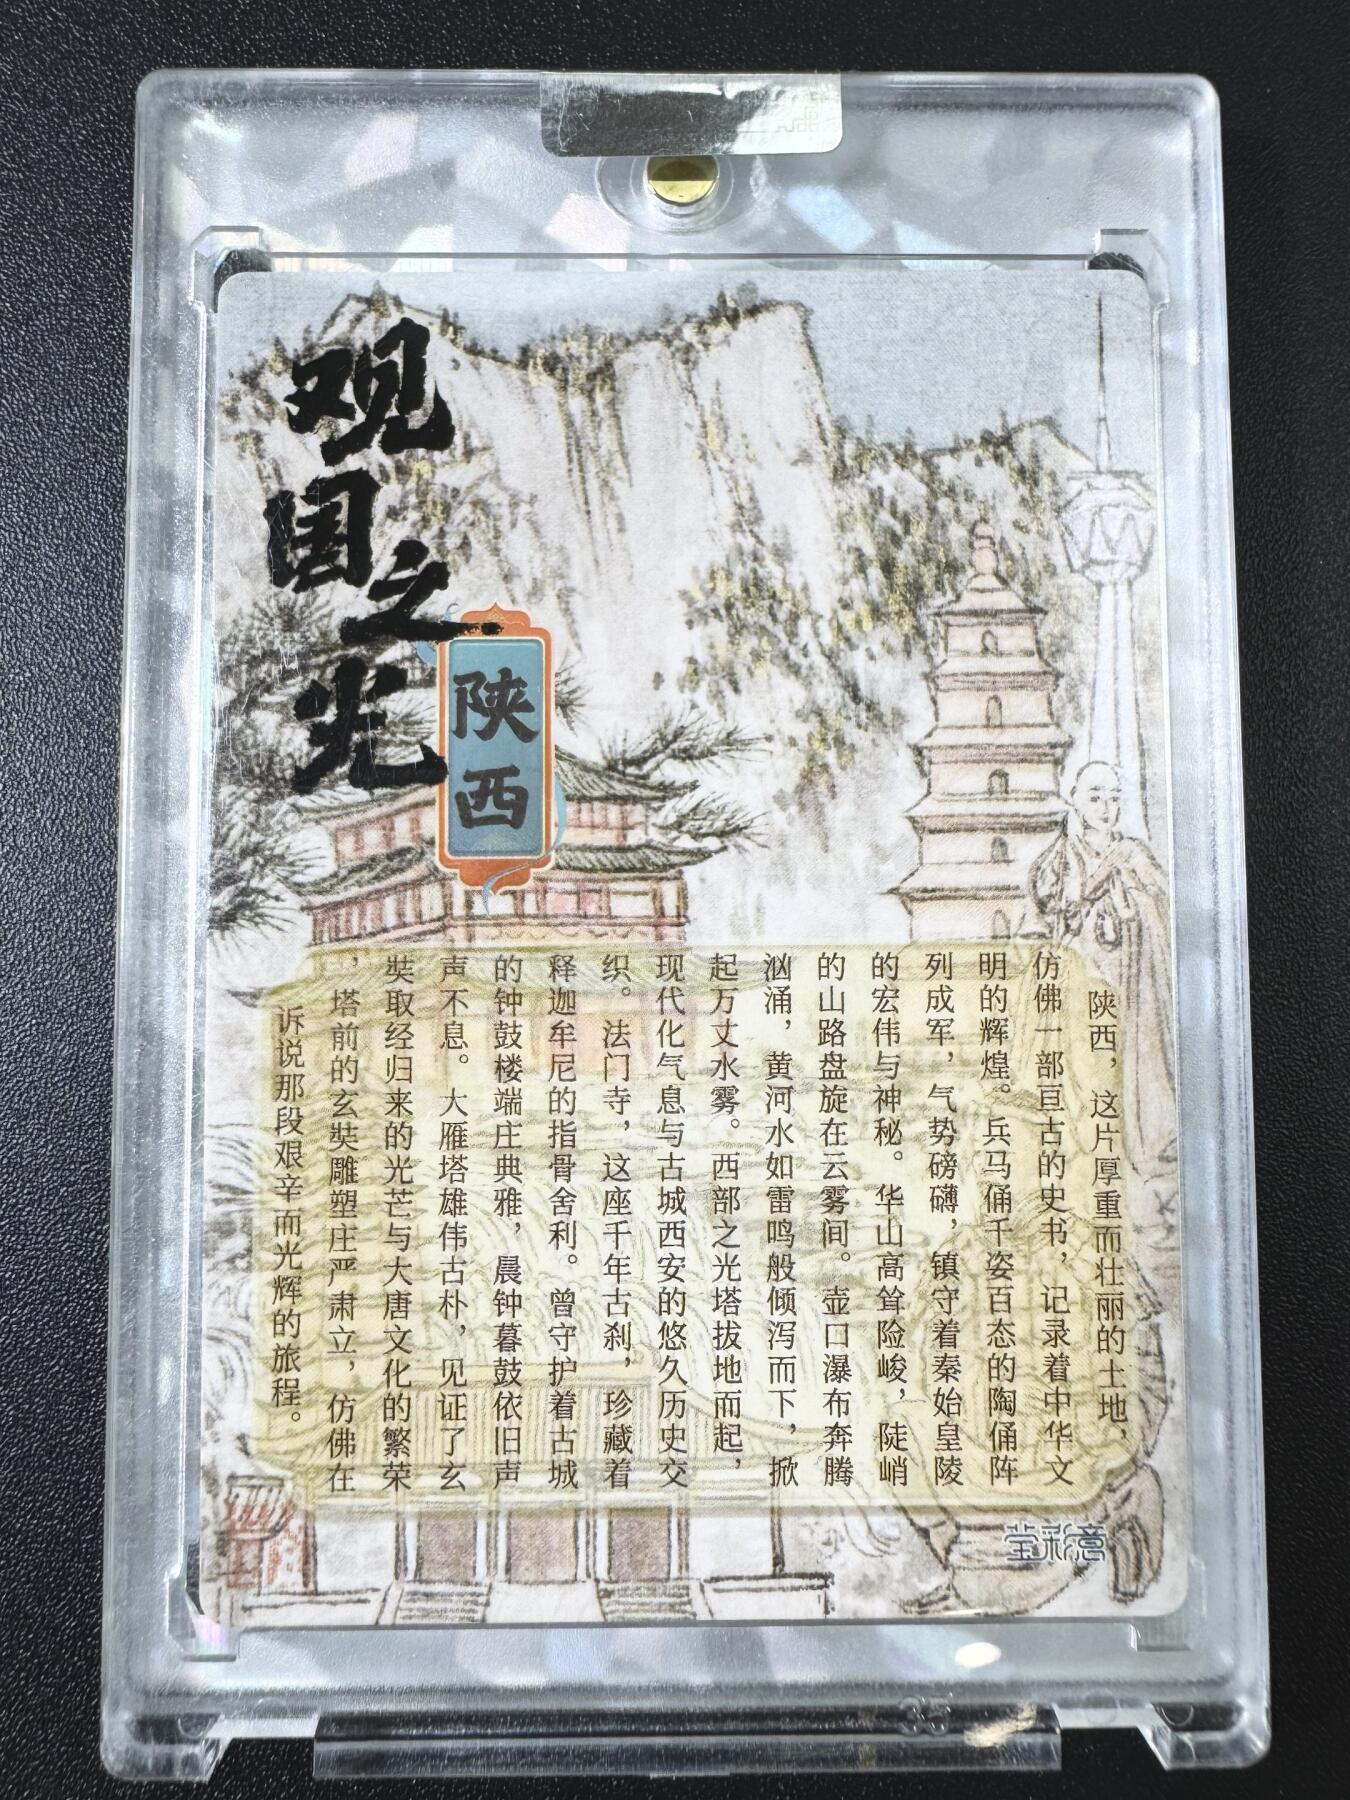 观国之光
陕西
陕西，这片厚重而壮丽的土地，
仿佛一部亘古的史书，记录着中华文
明的辉煌。兵马俑千姿百态的陶俑阵
列成军，气势磅礴，镇守着秦始皇陵
的宏伟与神秘。华山高耸险峻，陡峭
的山路盘旋在云雾间。壶口瀑布奔腾
汹涌，黄河水如雷鸣般倾泻而下，掀
起万丈水雾。西部之光塔拔地而起，
现代化气息与古城西安的悠久历史交
织。法门寺，这座千年古刹，珍藏着
释迦牟尼的指骨舍利。曾守护着古城
的钟鼓楼端庄典雅，晨钟暮鼓依旧声
声不息。大雁塔雄伟古朴，见证了玄
奘取经归来的光芒与大唐文化的繁荣
，塔前的玄奘雕塑庄严肃立，仿佛在
诉说那段艰辛而光辉的旅程。
莹彩斋
35